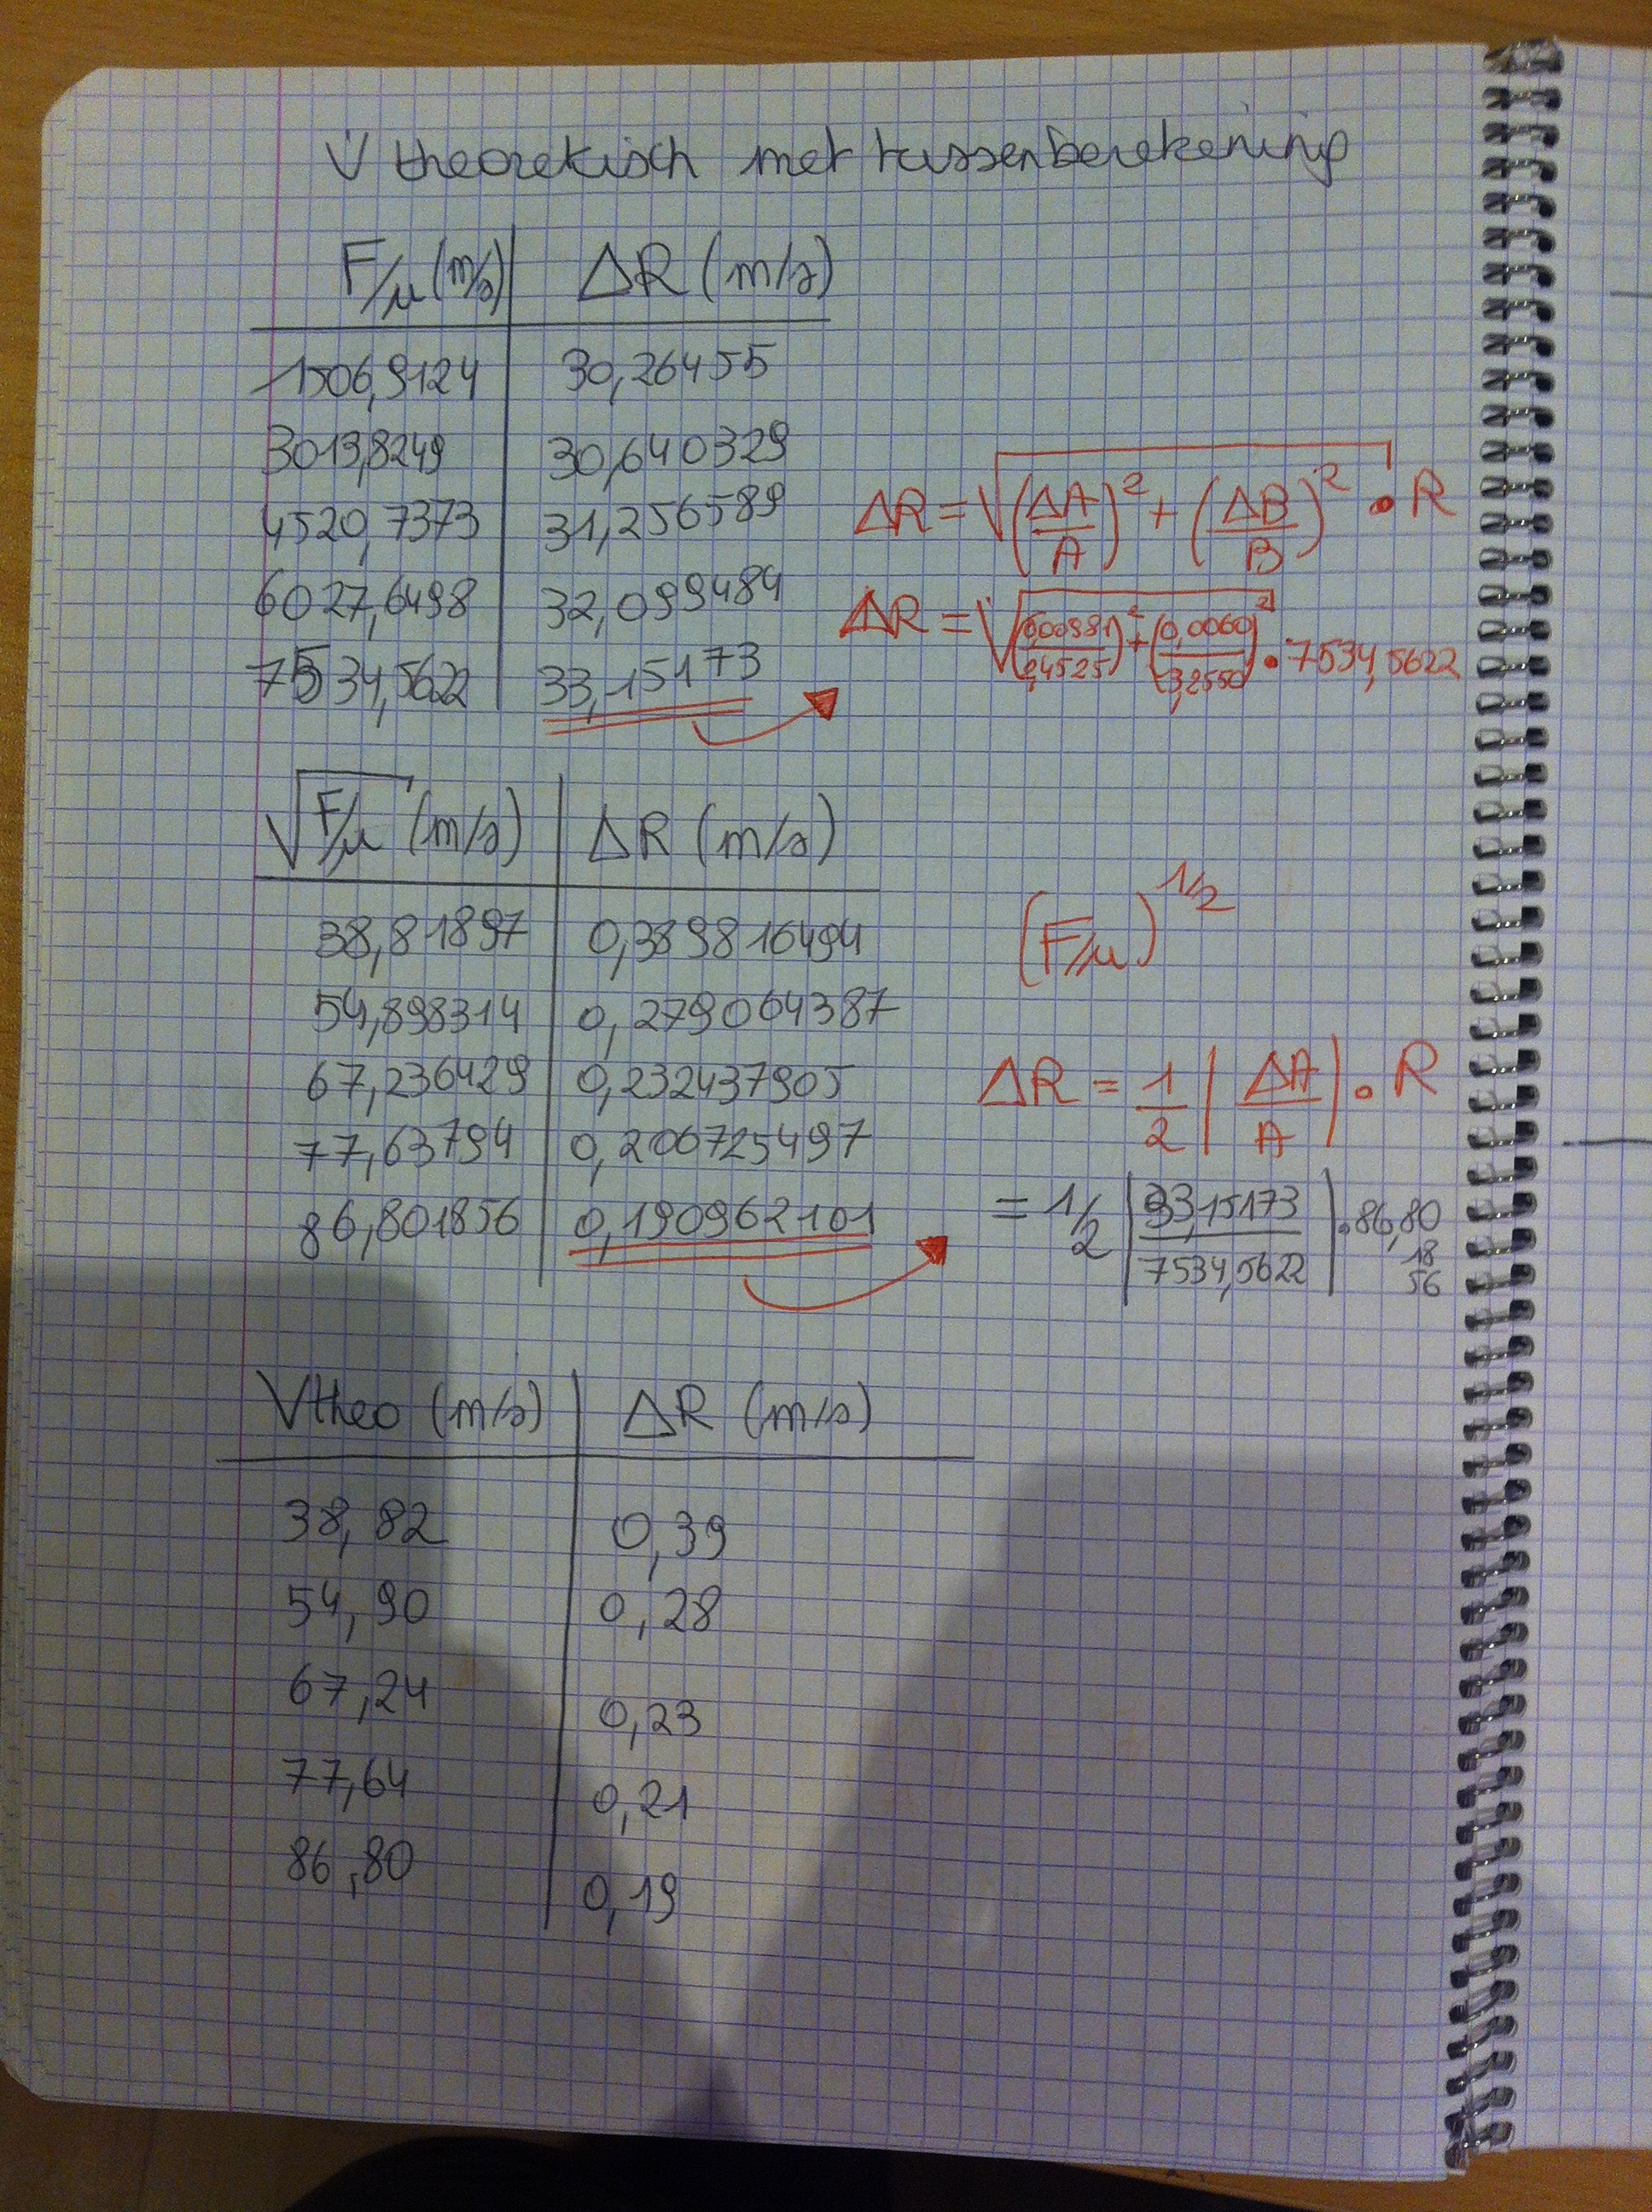 V theoretisch met tussenberekening
F/μ (m/s) | ΔR (m/s)
1506,9124 | 30,26455
3013,8249 | 30,640329
4520,7373 | 31,256589
6027,6498 | 32,099484
7534,5622 | 33,15173
ΔR = √((ΔA/A)² + (ΔB/B)²) • R
ΔR = √((0,00981/2,4525)² + (0,0060/3,2550)²) • 7534,5622
√F/μ (m/s) | ΔR (m/s)
38,81897 | 0,389816494
54,898314 | 0,279064387
67,236429 | 0,232437905
77,63794 | 0,206725497
86,801856 | 0,190962101
(F/μ)^1/2
ΔR = 1/2 |ΔA/A| • R
= 1/2 |33,15173/7534,5622| • 86,80
18
56
Vtheo (m/s) | ΔR (m/s)
38,82 | 0,39
54,90 | 0,28
67,24 | 0,23
77,64 | 0,21
86,80 | 0,19